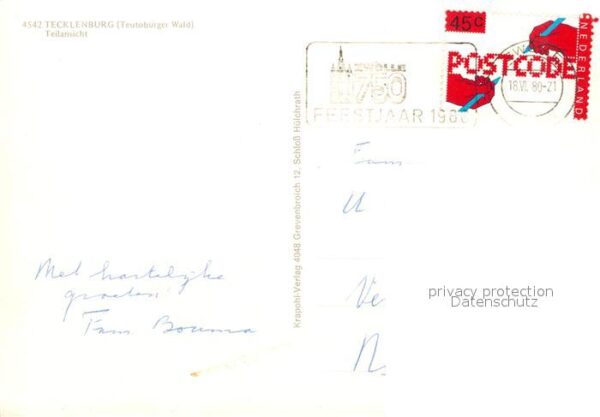 4542 TECKLENBURG (Teutoburger Wald)
Teilansicht
45c
POSTCODE
NEDERLAND
ZWOLLE
750
FEESTJAAR 1980
18.VI.80-21
Krapohl-Verlag 4048 Grevenbroich 12, Schloß Hülchrath
Fam
Ve
N.
Met hartelijke
groeten
Fam Bouma
privacy protection
Datenschutz